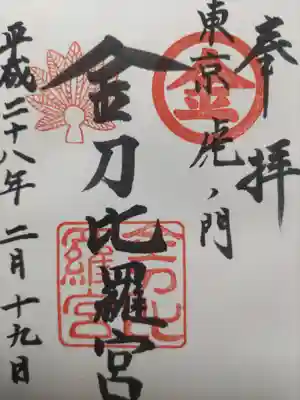 奉拝
東京虎ノ門
金
金刀比羅宮
金刀比羅宮
平成二十八年 二月十九日